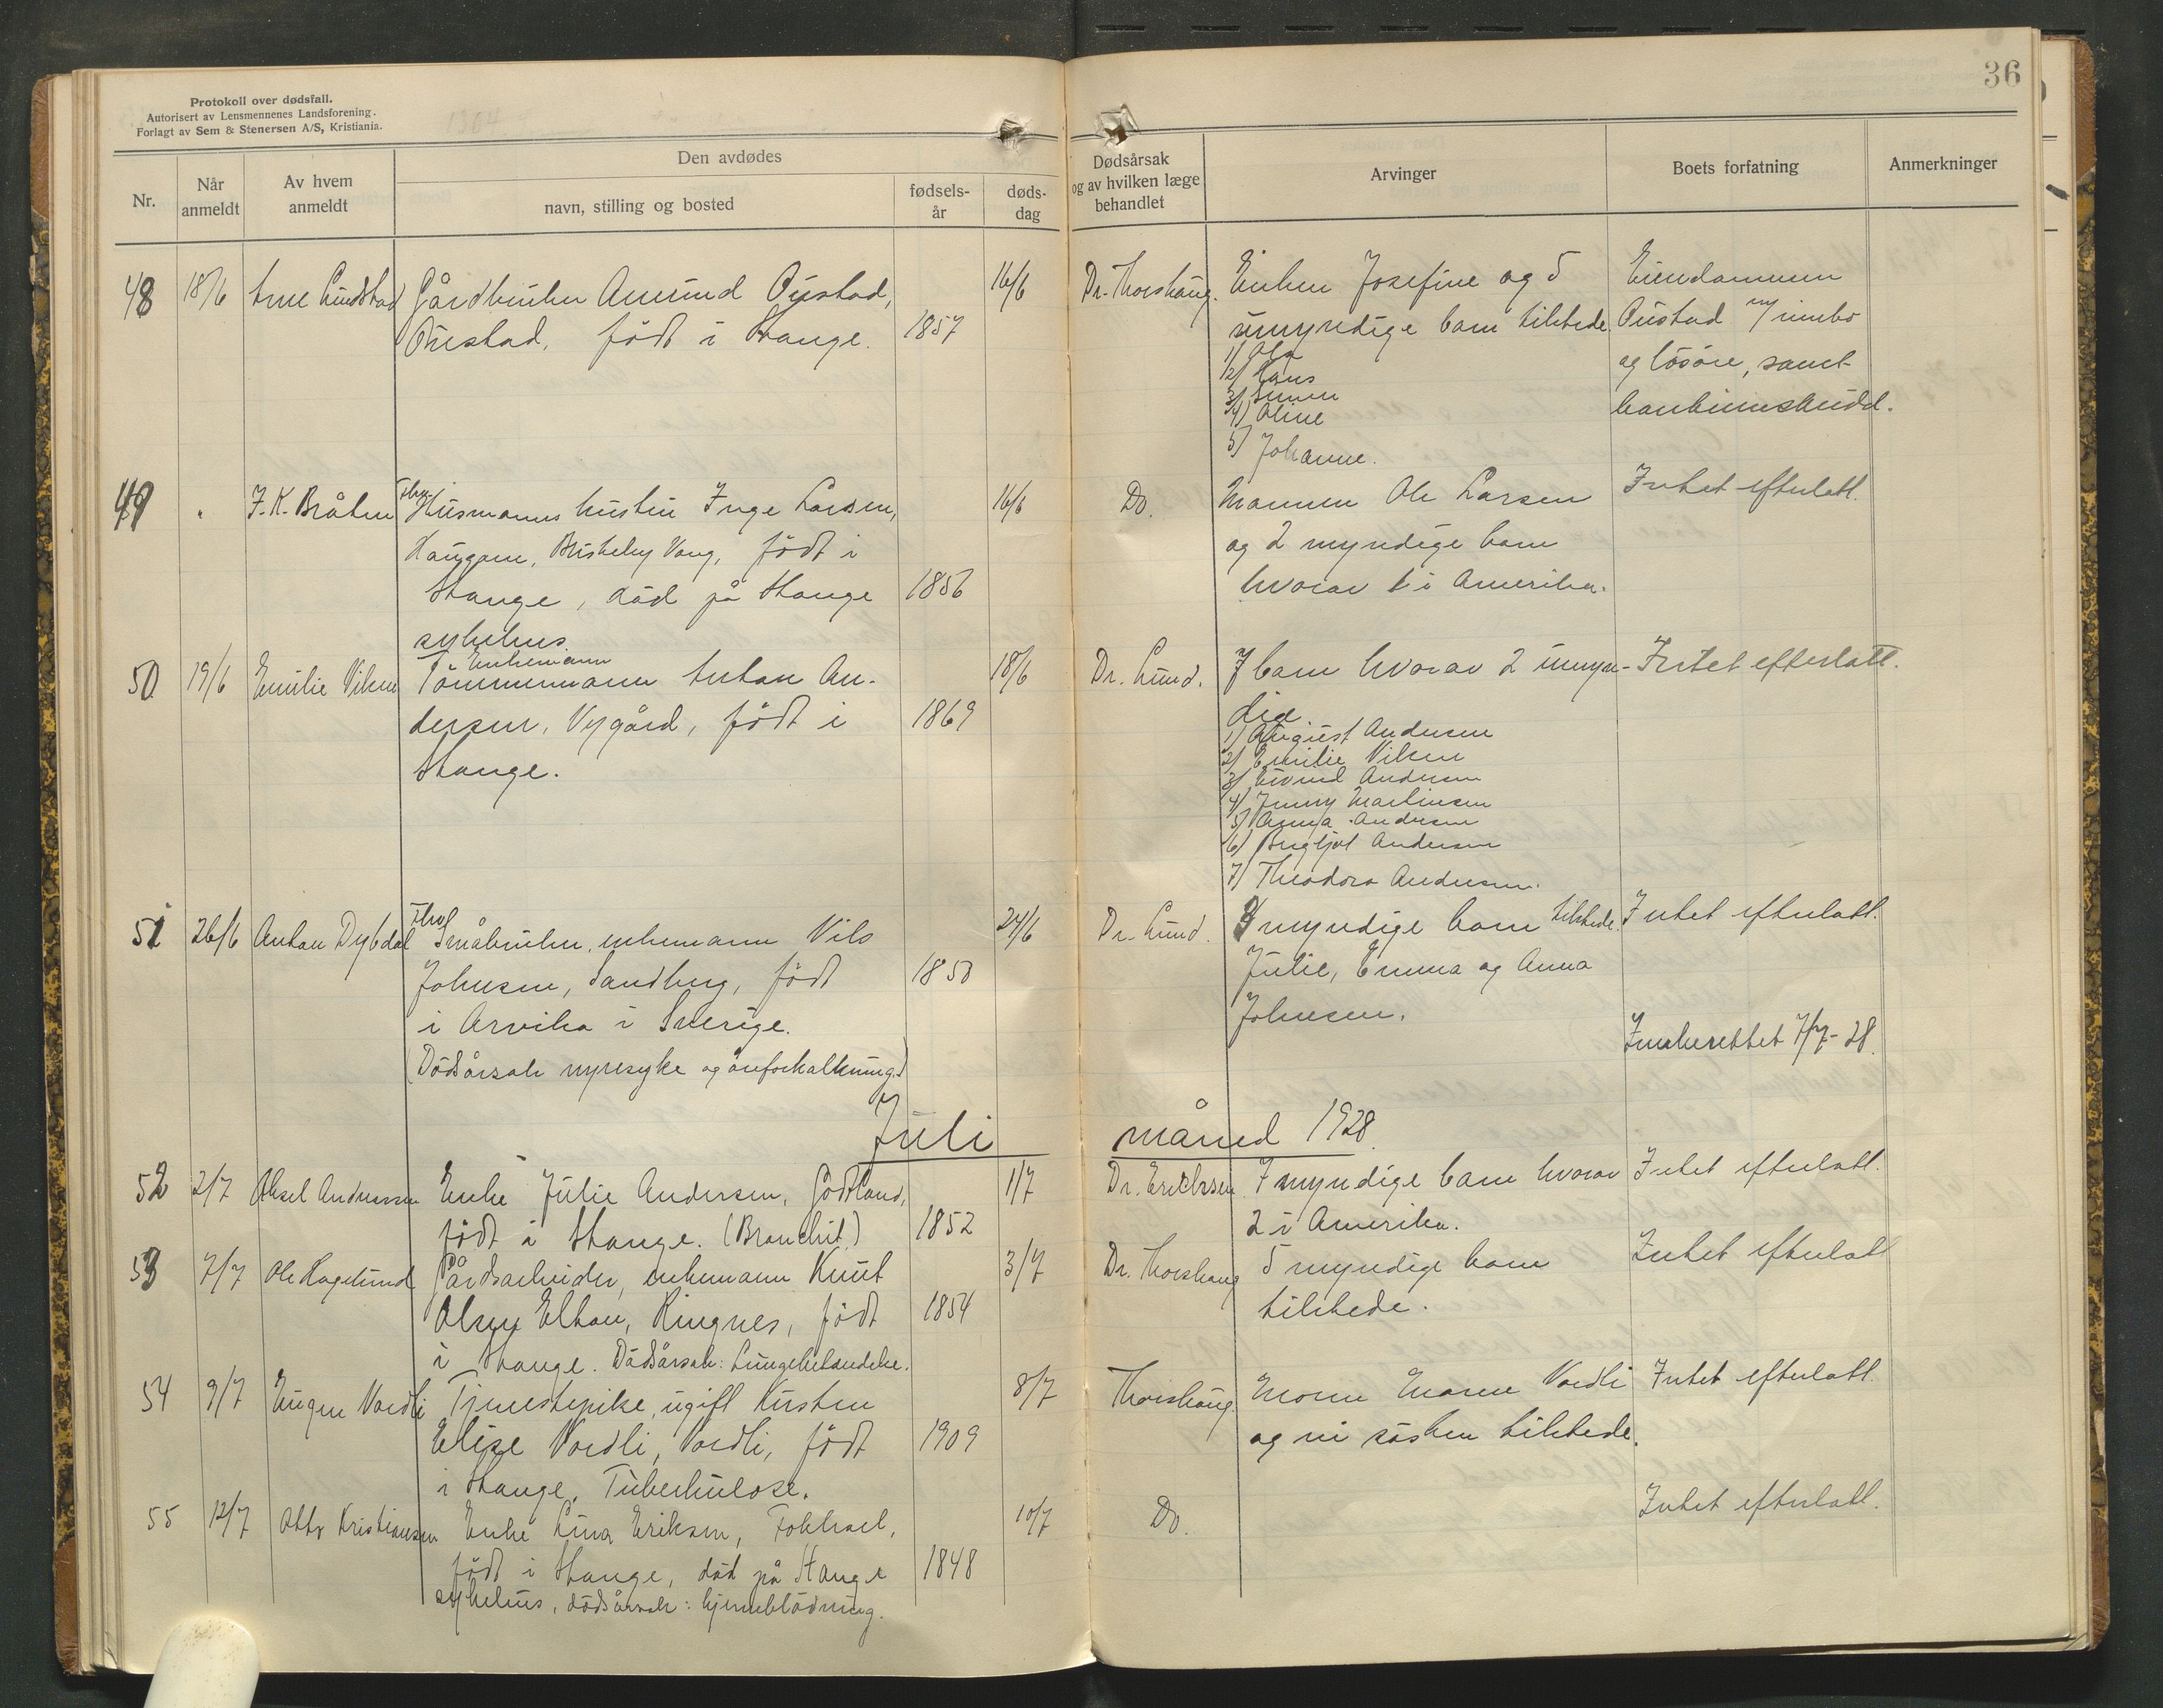 Protokoll over dødsfall.
Autorisert av Lensmennenes Landsforening.
Forlagt av Sem & Stenersen A/S, Kristiania.
36
Nr.
Når
anmeldt
Av hvem
anmeldt
Den avdødes
navn, stilling og bosted
fødsels-
år
døds-
dag
Dødsårsak
og av hvilken læge
behandlet
Arvinger
Boets forfatning
Anmerkninger
48 18/6 Arne Lundstad Gårdbruker Amund Oustad, 16/6 Dr. Thorshaug. Enken Josefine og 5 Eiendommen
Oustad, född i Stange. 1857 umyndige barn tilstede Oustad m/ innbo
1) Ola og lösöre, samt
2) Hans bankinnskudd.
3) Simen
4) Oline
5) Johanne.
49 " J. K. Bråten Husmanns hustru Inge Larsen, 16/6 Do. Mannen Ole Larsen Intet efterlatt.
Haugen, Vang, född i og 2 myndige barn
Stange, död på Stange 1856 hvorav 1 i Amerika.
sykehus.
Enkemann
50 19/6 Emilie Viken Tömmermann Anton An- 18/6 Dr. Lund. 7 barn hvorav 2 umyn- Intet efterlatt.
dersen, Nygård, född i 1869 dige
Stange. 1) August Andersen
2) Emilie Viken
3) Eivind Andersen
4) Jenny Martinsen
5) Anna Andersen
6) Bergljot Andersen
7) Theodora Andersen.
51 26/6 Anton Dybdal Småbruker, enkemann Nils 24/6 Dr. Lund. myndige barn tilstede. Intet efterlatt.
Johnsen, Sandberg, född 1850 Julie, Emma og Anna
i Arvika i Sverige. Johnsen.
(Dödsårsak nyresyke og åreforkalkning.) Innberettet 7/7-28.
Juli måned 1928.
52 2/7 Aksel Andersen Enke Julie Andersen, Godtland, 1/7 Dr. Erichsen 7 myndige barn hvorav Intet efterlatt.
född i Stange. (Bronchit) 1852 2 i Amerika.
53 7/7 Ole Hagelund Gårdsarbeider, enkemann Knut 3/7 Dr. Thorshaug 5 myndige barn Intet efterlatt
Olsen Elton, Ringnes, född 1854 tilstede.
i Stange. Dödsårsak: Lungebetendelse.
54 9/7 Eugen Vordli Tjenestepike, ugift Kirsten 8/7 Thorshaug. Moren Maren Vordli Intet efterlatt.
Elise Vordli, Vordli, född 1909 og ni sösken tilstede.
i Stange. Tuberkulose.
55 12/7 Otto Kristiansen Enke Lina Eriksen, 10/7 Do. Intet efterlatt.
född i Stange, död på Stange 1848
sykehus, dödsårsak: hjerneblödning.